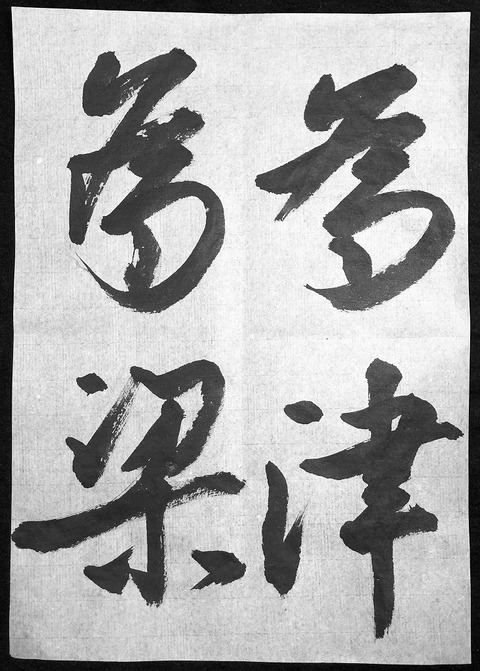 為津
為梁